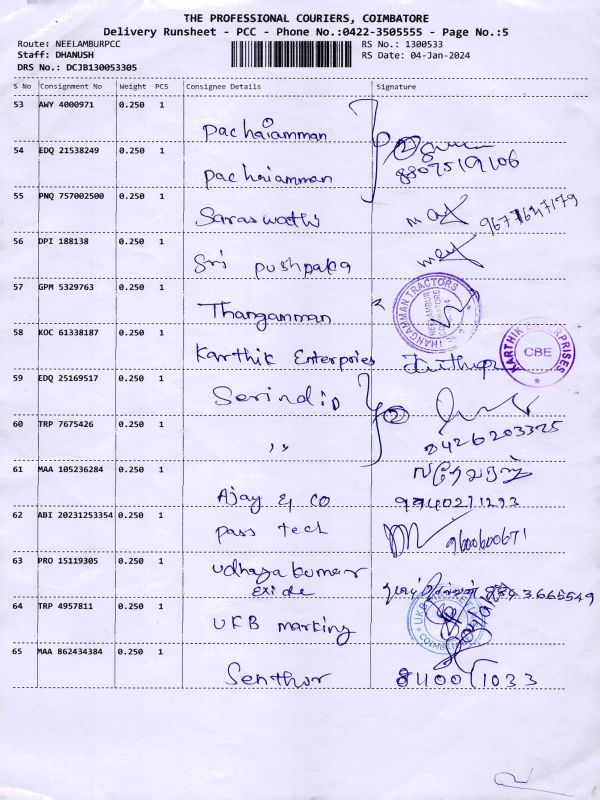 THE PROFESSIONAL COURIERS, COIMBATORE
Delivery Runsheet - PCC - Phone No.:0422-3505555 - Page No.:5
Route: NEELAMBURPCC
RS No.: 1300533
Staff: DHANUSH
RS Date: 04-Jan-2024
DRS No.: DCJB130053305
S No Consignment No Weight PCS Consignee Details Signature
53 AWY 4000971 0.250 1
pachaiamman
54 EDQ 21538249 0.250 1
8807519106
pachaiamman
55 PNQ 757002500 0.250 1
Saraswathi
9677647179
56 DPI 188138 0.250 1
Sri pushpaka
57 GPM 5329763 0.250 1
THANGAMMAN TRACTORS
NEELAMBUR
Thangamman
58 KOC 61338187 0.250 1
KARTHIK ENTERPRISES
CBE
Karthik Enterpries
59 EDQ 25169517 0.250 1
Serindip
2
60 TRP 7675426 0.250 1
8426203325
,,
61 MAA 105236284 0.250 1
Ajay & co 9940271293
62 ABI 20231253354 0.250 1
pass tech 9600600671
63 PRO 15119305 0.250 1
udhayakumar
exide
64 TRP 4957811 0.250 1
UKB marking
UKB
COIMBATORE
65 MAA 862434384 0.250 1
Senthur 8110011033